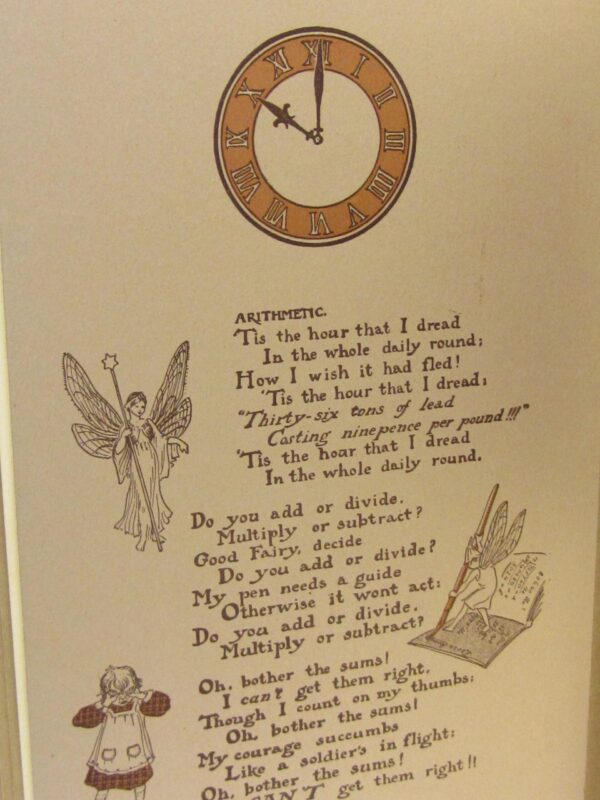 XII
I
II
III
IIII
V
VI
VII
VIII
IX
X
XI
ARITHMETIC.
'Tis the hour that I dread
In the whole daily round;
How I wish it had fled!
'Tis the hour that I dread;
"Thirty-six tons of lead
Costing ninepence per pound!!!"
'Tis the hour that I dread
In the whole daily round.
Do you add or divide.
Multiply or subtract?
Good Fairy, decide
Do you add or divide?
My pen needs a guide
Otherwise it wont act:
Do you add or divide.
Multiply or subtract?
Oh, bother the sums!
I can't get them right,
Though I count on my thumbs;
Oh, bother the sums!
My courage succumbs
Like a soldier's in flight:
Oh, bother the sums!
CAN'T get them right!!